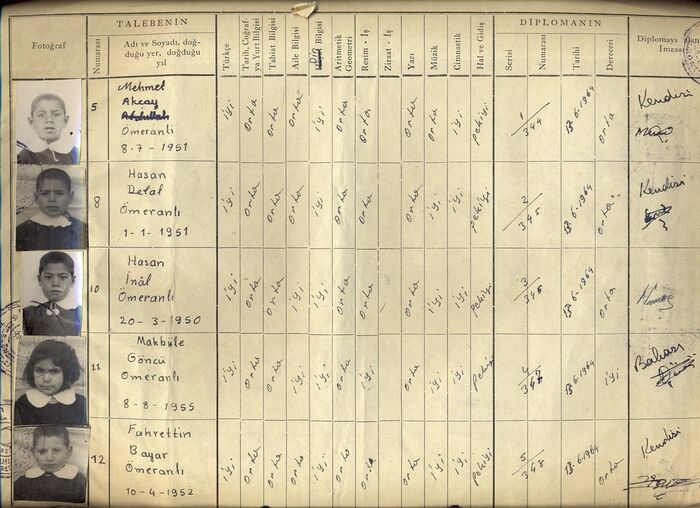 TALEBENİN
DİPLOMANIN
Fotoğraf
Numarası
Adı ve Soyadı, doğ-
duğu yer, doğduğu
yıl
Türkçe
Tarih, Coğraf-
ya Yurt Bilgisi
Tabiat Bilgisi
Aile Bilgisi
Din Bilgisi
Aritmetik
Geometri
Resim - İş
Ziraat - İş
Yazı
Müzik
Cimnastik
Hal ve Gidiş
Serisi
Numarası
Tarihi
Derecesi
Diplomayı
İmzası
5
Mehmet
Akcay
Abdullah
Ömeranlı
8-7-1951
iyi orta orta orta iyi orta orta orta orta iyi pekiyi 1/344 6-1964 orta
Kendisi
8
Hasan
Delal
Ömeranlı
1-1-1951
iyi orta orta orta iyi orta orta orta iyi iyi pekiyi 2/345 6-1964 orta
Kendisi
10
Hasan
İnâl
Ömeranlı
20-3-1950
iyi orta orta iyi iyi orta orta orta iyi iyi pekiyi 3/346 6-1964 orta
11
Makbule
Göncü
Ömeranlı
8-8-1955
iyi orta orta iyi iyi orta iyi orta iyi iyi pekiyi 6-1964 iyi
Babası
12
Fahrettin
Bayar
Ömeranlı
10-4-1952
iyi orta orta orta iyi orta orta orta iyi iyi pekiyi 5/348 6-1964 orta
Kendisi